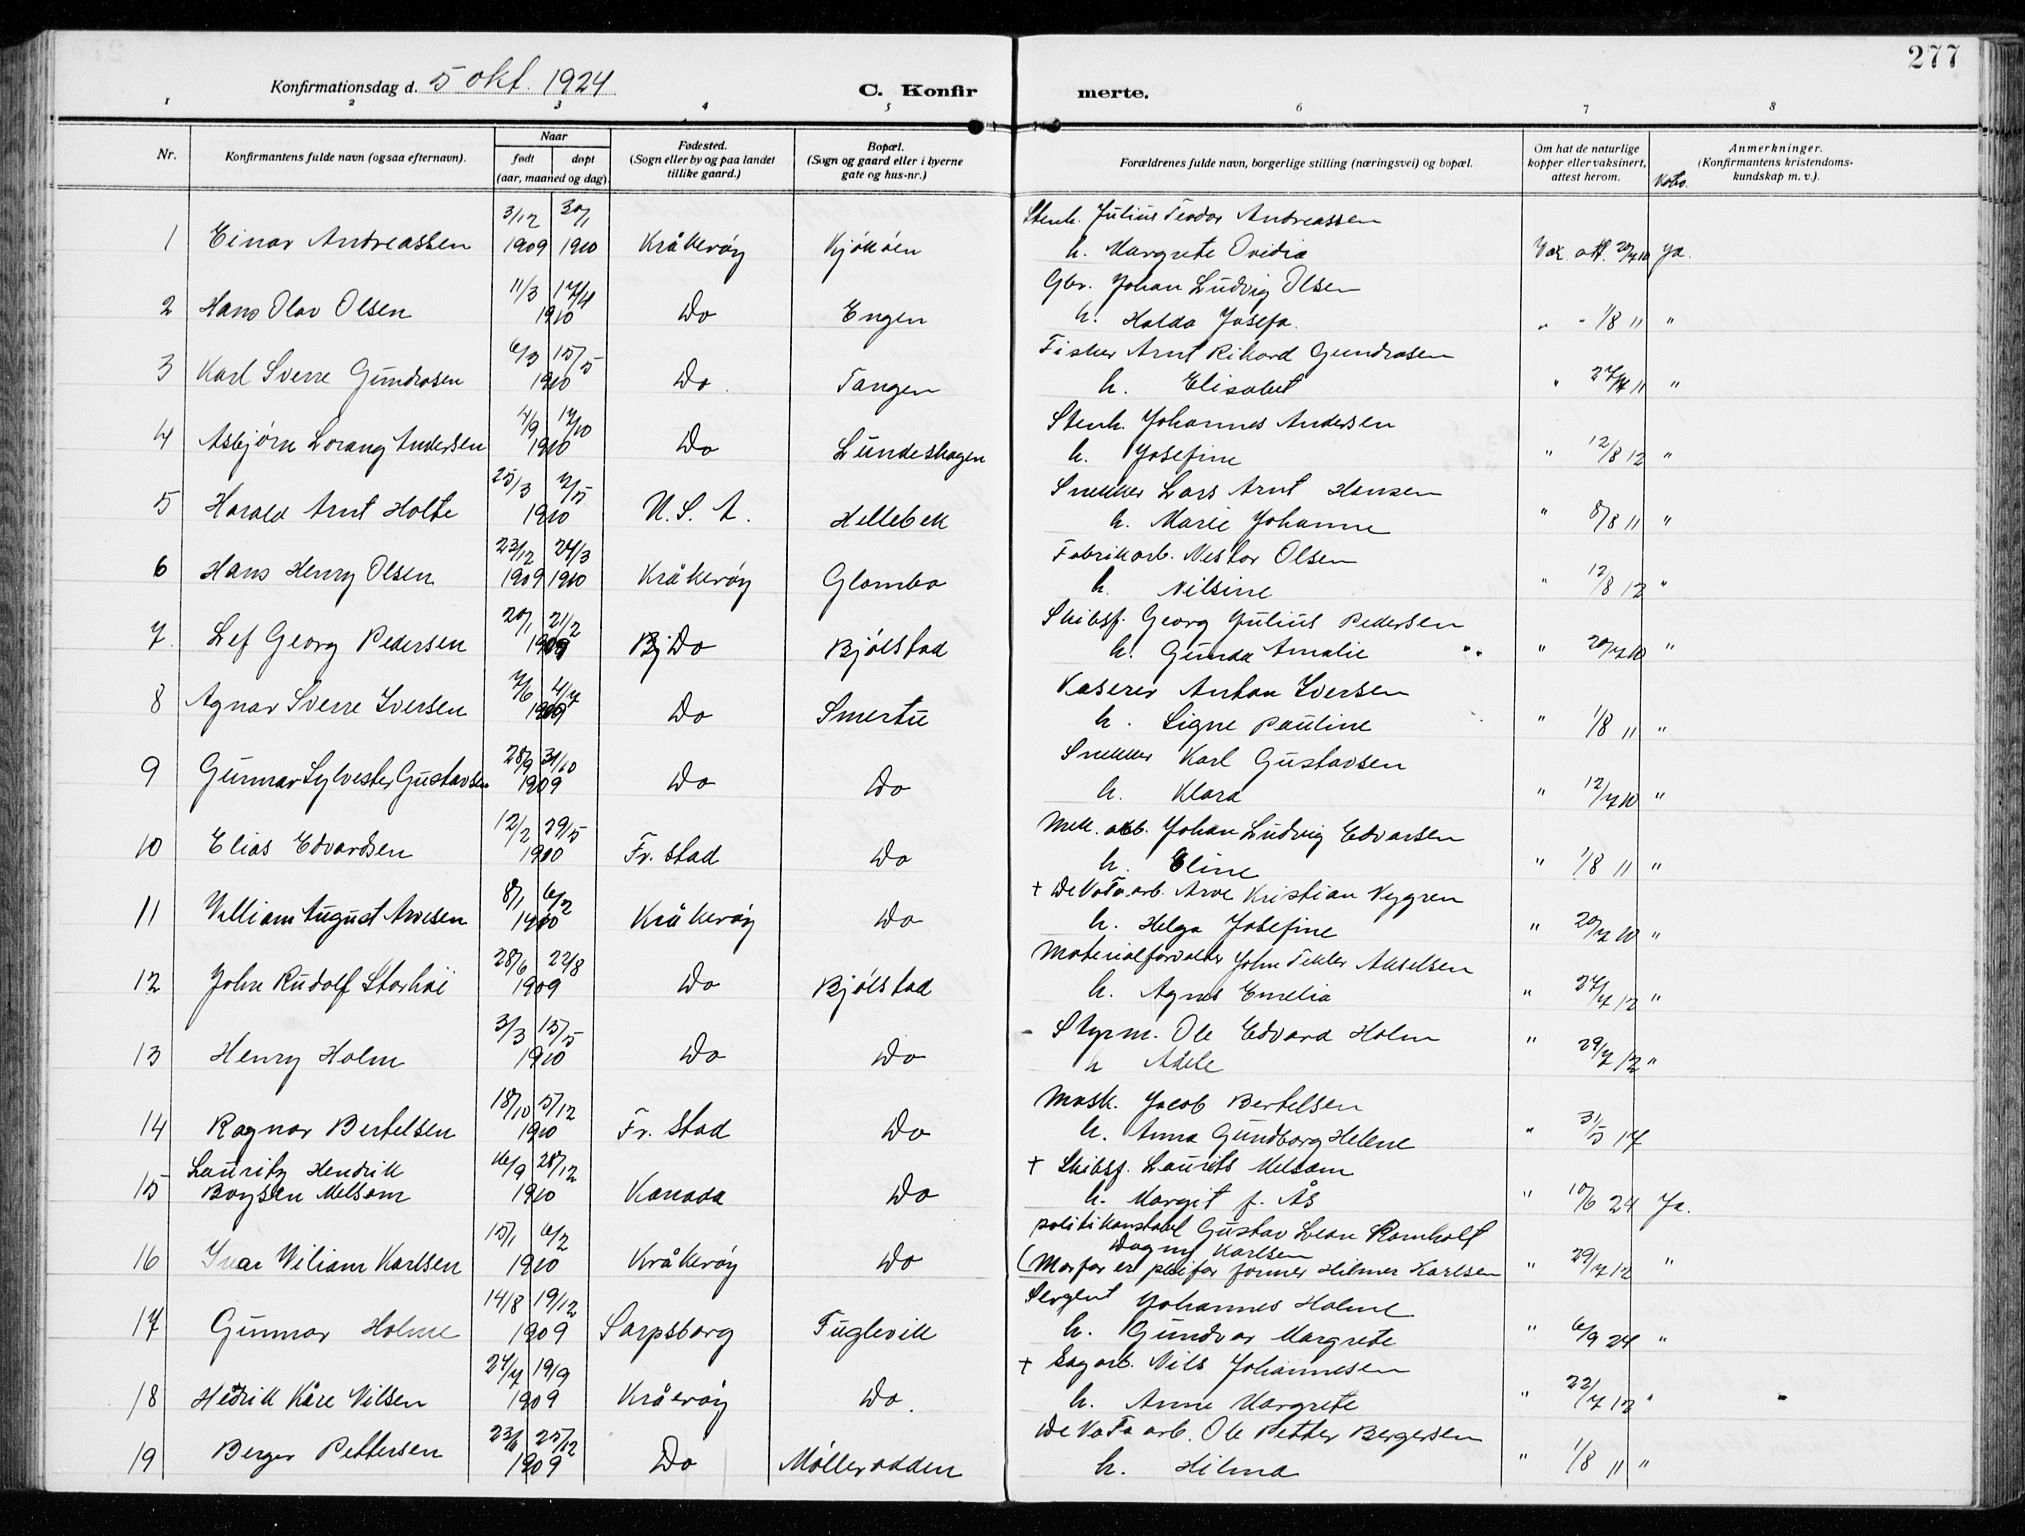 277
Konfirmationsdag d. 5 okt. 1924
C. Konfirmerte.
1 2 3 4 5 6 7 8
Nr. Konfirmantens fulde navn (ogsaa efternavn). Naar født døpt (aar, maaned og dag). Fødested. (Sogn eller by og paa landet tillike gaard.) Bopæl. (Sogn og gaard eller i byerne gate og hus-nr.) Forældrenes fulde navn, borgerlige stilling (næringsvei) og bopæl. Om hat de naturlige kopper eller vaksinert, attest herom. Anmerkninger. (Konfirmantens kristendomskundskap m. v.).
3/12 30/1 Stenh. Julius Teodor Andreassen
1 Einar Andreassen 1909 1910 Kråkerøy Kjøkøen h. Margrete Ovidia Vax. att. 20/7 10 Ja.
11/3 17/4 Gbr. Johan Ludvig Olsen
2 Hans Olav Olsen 1910 Do Engen h. Halda Josefa. " " 1/8 11 "
6/3 15/5 Fisker Arnt Rikard Gundrosen
3 Karl Sverre Gundrosen 1910 Do. Tangen h. Elisabet " 11 "
4/9 Stenh. Johannes Andersen
4 Asbjørn Lorang Andersen 1910 Do Lundeshagen h. Josefine " 12/8 12 "
25/3 Snekker Lars Arnt Hansen
5 Harald Arnt Holte 1910 U. S. A. Hellebek h. Marie Johanne " 8/8 11 "
23/12 24/3 Fabrikarb. Nestor Olsen
6 Hans Henry Olsen 1909 1910 Kråkerøy Glombo h. Nilsine " 12/8 12 "
20/1 21/2 Skibsf. Georg Julius Pedersen
7. Lef Georg Pedersen 1909 Do Bjølstad h. Gunda Amalie " 20/7 10 "
7/6 4/7 Kaserer Anton Iversen
8 Agnar Sverre Iversen 1909 Do Smertu h. Signe Pauline " 1/8 11 "
28/9 31/10 Snekker Karl Gustavsen
9 Gunnar Sylvester Gustavsen 1909 Do Do h. Klara " 12/7 10 "
12/2 29/5 Mek. arb. Johan Ludvig Edvarsen
10 Elias Edvardsen 1910 Fr. stad Do h. Eline " 1/8 11 "
8/1 6/2 + DeNoFa arb. Arve Kristian Nygren
11 Villiam August Arvesen 1910 Kråkerøy Do h. Helga Josefine " 20/7 10 "
28/6 22/8 Materialforvalter John Akselsen
12 John Rudolf Storhøi 1909 Do Bjølstad h. Agnes Emelia " 27/7 12 "
3/3 15/5 Styrm. Ole Edvard Holm
13 Henry Holm 1910 Do Do h Adele " 29/7 12 "
18/10 5/12 Mask. Jacob Bertelsen
14 Ragnar Bertelsen 1910 Fr. stad Do h. Anna Gundborg Helene " 31/5 14
Lauritz Hendrik 16/9 28/12 + Skibsf. Laurits Melsom
15 Boysen Melsom 1910 Kanada Do h. Margit f. Ås " 10/6 24 Ja.
15/1 6/2 politikonstabel Gustav Leon Ramholt
Dagny Karlsen
16 Ivar Viliam Karlsen 1910 Kråkerøy Do (Morfar er pleifar former Hilmer Karlsen " 29/7 12 "
14/8 19/12 Sergent Johannes Holme
17 Gunnar Holme 1909 Sarpsborg Fuglevik h. Gundvor Margrete " 6/9 24 "
24/7 19/9 + Sagarb. Nils Johannesen
18 Hedrik Kåre Nilsen 1909 Kråerøy Do. h. Anne Margrete " 22/7 12 "
25/12 De NoFa arb. Ole Petter Bergersen
19 Berger Pettersen 1909 Do Møllerodden h. Hilma " 1/8 11 "